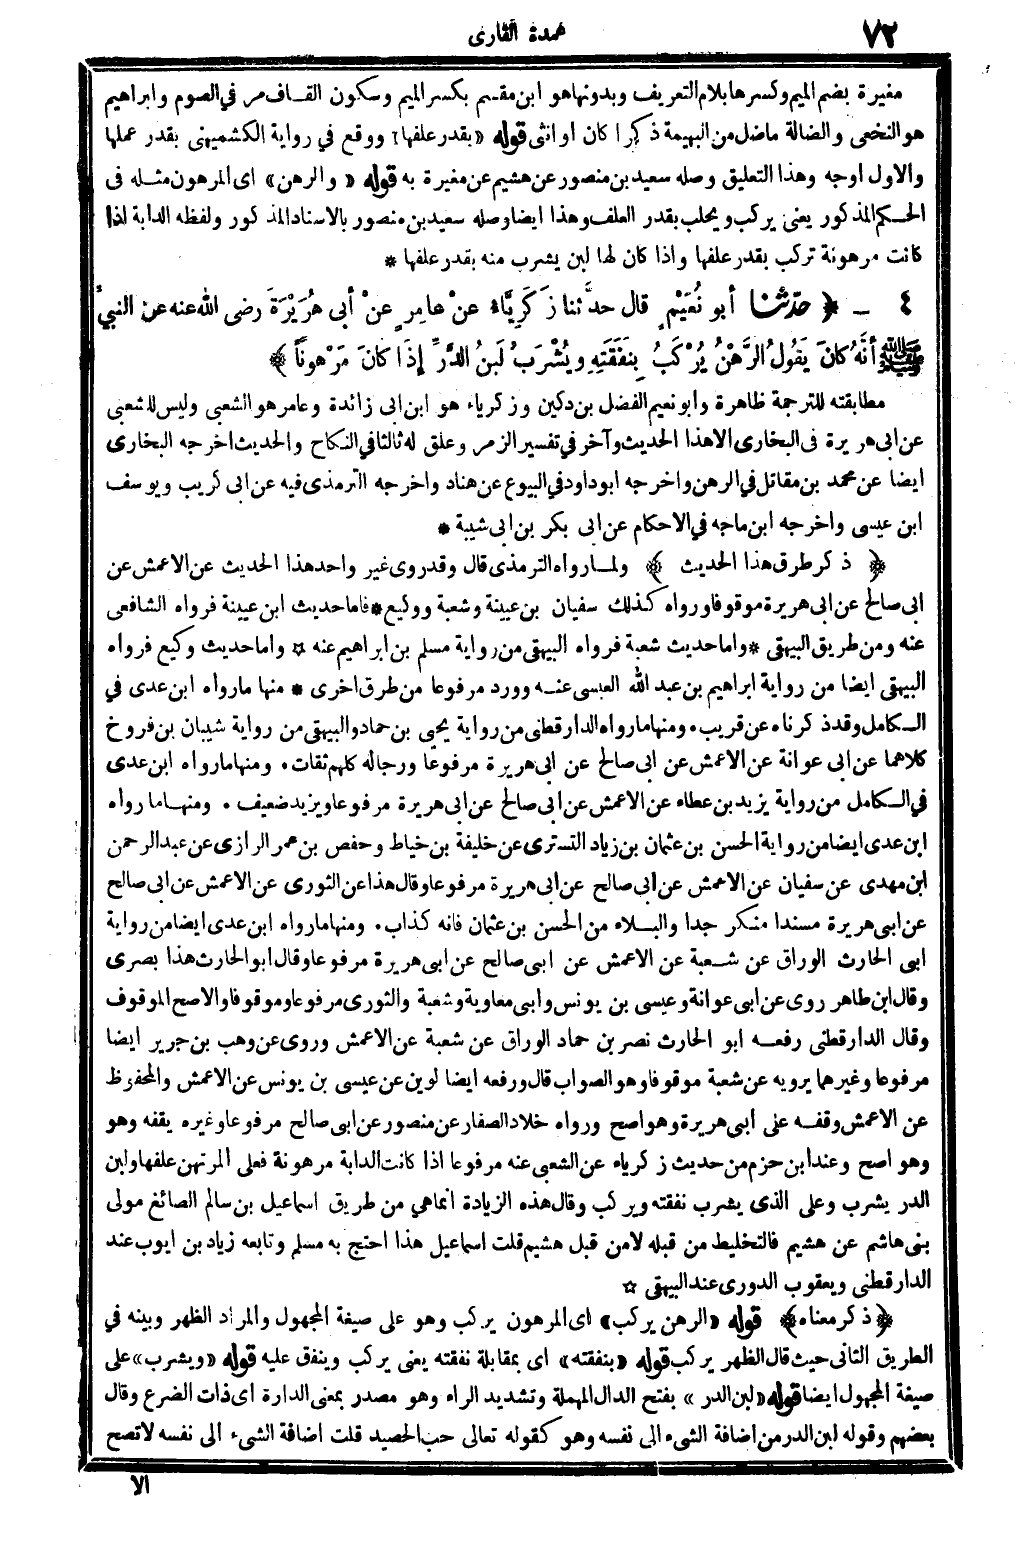 ٧٢
عمدة القارى
مغيرة بضم الميم وكسرها بلام التعريف وبدونها هو ابن مقسم بكسر الميم وسكون القاف مر في الصوم وابراهيم
هو النخعى والضالة ماضل من البهيمة ذكرا كان او انثى قوله «بقدر علفها» ووقع في رواية الكشميهنى بقدر عملها
والاول اوجه وهذا التعليق وصله سعيد بن منصور عن هشيم عن مغيرة به قوله « والرهن» اى المرهون مثله فى
الحكم المذكور يعنى يركب ويحلب بقدر العلف وهذا ايضا وصله سعيد بن منصور بالاسناد المذكور ولفظه الدابة اذا
كانت مرهونة تركب بقدر علفها واذا كان لها لبن يشرب منه بقدر علفها *
٤ – ﴿ حدّثنا أبو نُعَيْمٍ قال حدَّثنا زَكَرِيَّاءُ عنْ عامِرٍ عنْ أبى هُرَيْرَةَ رضى الله عنه عن النبيِّ
ﷺ أنَّهُ كانَ يَقُولُ الرَّهْنُ يُرْكَبُ بِنَفَقَتِهِ ويُشْرَبُ لَبنُ الدَّرِّ إِذَا كانَ مَرْهُوناً ﴾
مطابقته للترجمة ظاهرة وأبو نعيم الفضل بن دكين وزكرياء هو ابن ابى زائدة وعامر هو الشعبى وليس للشعبى
عن ابى هريرة فى البخارى الا هذا الحديث وآخر في تفسير الزمر وعلق له ثالثا في النكاح والحديث اخرجه البخارى
ايضا عن محمد بن مقاتل في الرهن واخرجه ابو داود في البيوع عن هناد واخرجه الترمذى فيه عن ابى كريب ويوسف
ابن عيسى واخرجه ابن ماجه في الاحكام عن ابى بكر بن ابى شيبة *
﴿ ذكر طرق هذا الحديث ﴾ ولما رواه الترمذى قال وقد روى غير واحد هذا الحديث عن الاعمش عن
ابى صالح عن ابى هريرة موقوفا ورواه كذلك سفيان بن عيينة وشعبة ووكيع * فاما حديث ابن عيينة فرواه الشافعى
عنه ومن طريق البيهقى * واما حديث شعبة فرواه البيهقى من رواية مسلم بن ابراهيم عنه ☆ واما حديث وكيع فرواه
البيهقى ايضا من رواية ابراهيم بن عبد الله العبسى عنه وورد مرفوعا من طرق اخرى * منها ما رواه ابن عدى في
الكامل وقد ذكرناه عن قريب. ومنها ما رواه الدارقطنى من رواية يحيى بن حماد والبيهقى من رواية شيبان بن فروخ
كلاهما عن ابى عوانة عن الاعمش عن ابى صالح عن ابى هريرة مرفوعا ورجاله كلهم ثقات. ومنها ما رواه ابن عدى
في الكامل من رواية يزيد بن عطاء عن الاعمش عن ابى صالح عن ابى هريرة مرفوعا ويزيد ضعيف . ومنها ما رواه
ابن عدى ايضا من رواية الحسن بن عثمان بن زياد التسترى عن خليفة بن خياط وحفص بن عمر الرازى عن عبد الرحمن
ابن مهدى عن سفيان عن الاعمش عن ابى صالح عن ابى هريرة مرفوعا وقال هذا عن الثورى عن الاعمش عن ابى صالح
عن ابى هريرة مسندا منكر جدا والبلاء من الحسن بن عثمان فانه كذاب. ومنها ما رواه ابن عدى ايضا من رواية
ابى الحارث الوراق عن شعبة عن الاعمش عن ابى صالح عن ابى هريرة مرفوعا وقال ابو الحارث هذا بصرى
وقال ابن طاهر روى عن ابى عوانة وعيسى بن يونس وابى معاوية وشعبة والثورى مرفوعا وموقوفا والاصح الموقوف
وقال الدارقطنى رفعه ابو الحارث نصر بن حماد الوراق عن شعبة عن الاعمش وروى عن وهب بن جرير ايضا
مرفوعا وغيرهما يرويه عن شعبة موقوفا وهو الصواب قال ورفعه ايضا لوين عن عيسى بن يونس عن الاعمش والمحفوظ
عن الاعمش وقفه على أبى هريرة وهو اصح ورواه خلاد الصفار عن منصور عن ابى صالح مرفوعا وغيره يقفه وهو
وهو اصح وعند ابن حزم من حديث زكرياء عن الشعبى عنه مرفوعا اذا كانت الدابة مرهونة فعلى المرتهن علفها ولبن
الدر يشرب وعلى الذى يشرب نفقته ويركب وقال هذه الزيادة انماهي من طريق اسماعيل بن سالم الصائغ مولى
بنى هاشم عن هشيم فالتخليط من قبله لا من قبل هشيم قلت اسماعيل هذا احتج به مسلم وتابعه زياد بن ايوب عند
الدارقطنى ويعقوب الدورى عند البيهقى ☆
﴿ذكر معناه﴾ قوله «الرهن يركب» اى المرهون يركب وهو على صيغة المجهول والمراد الظهر وبينه في
الطريق الثانى حيث قال الظهر يركب قوله «بنفقته» اى بمقابلة نفقته يعنى يركب وينفق عليه قوله «ويشرب» على
صيغة المجهول ايضا قوله «لبن الدر» بفتح الدال المهملة وتشديد الراء وهو مصدر بمعنى الدارة اى ذات الضرع وقال
بعضهم وقوله لبن الدر من اضافة الشىء الى نفسه وهو كقوله تعالى حب الحصيد قلت اضافة الشىء الى نفسه لا تصح
الا